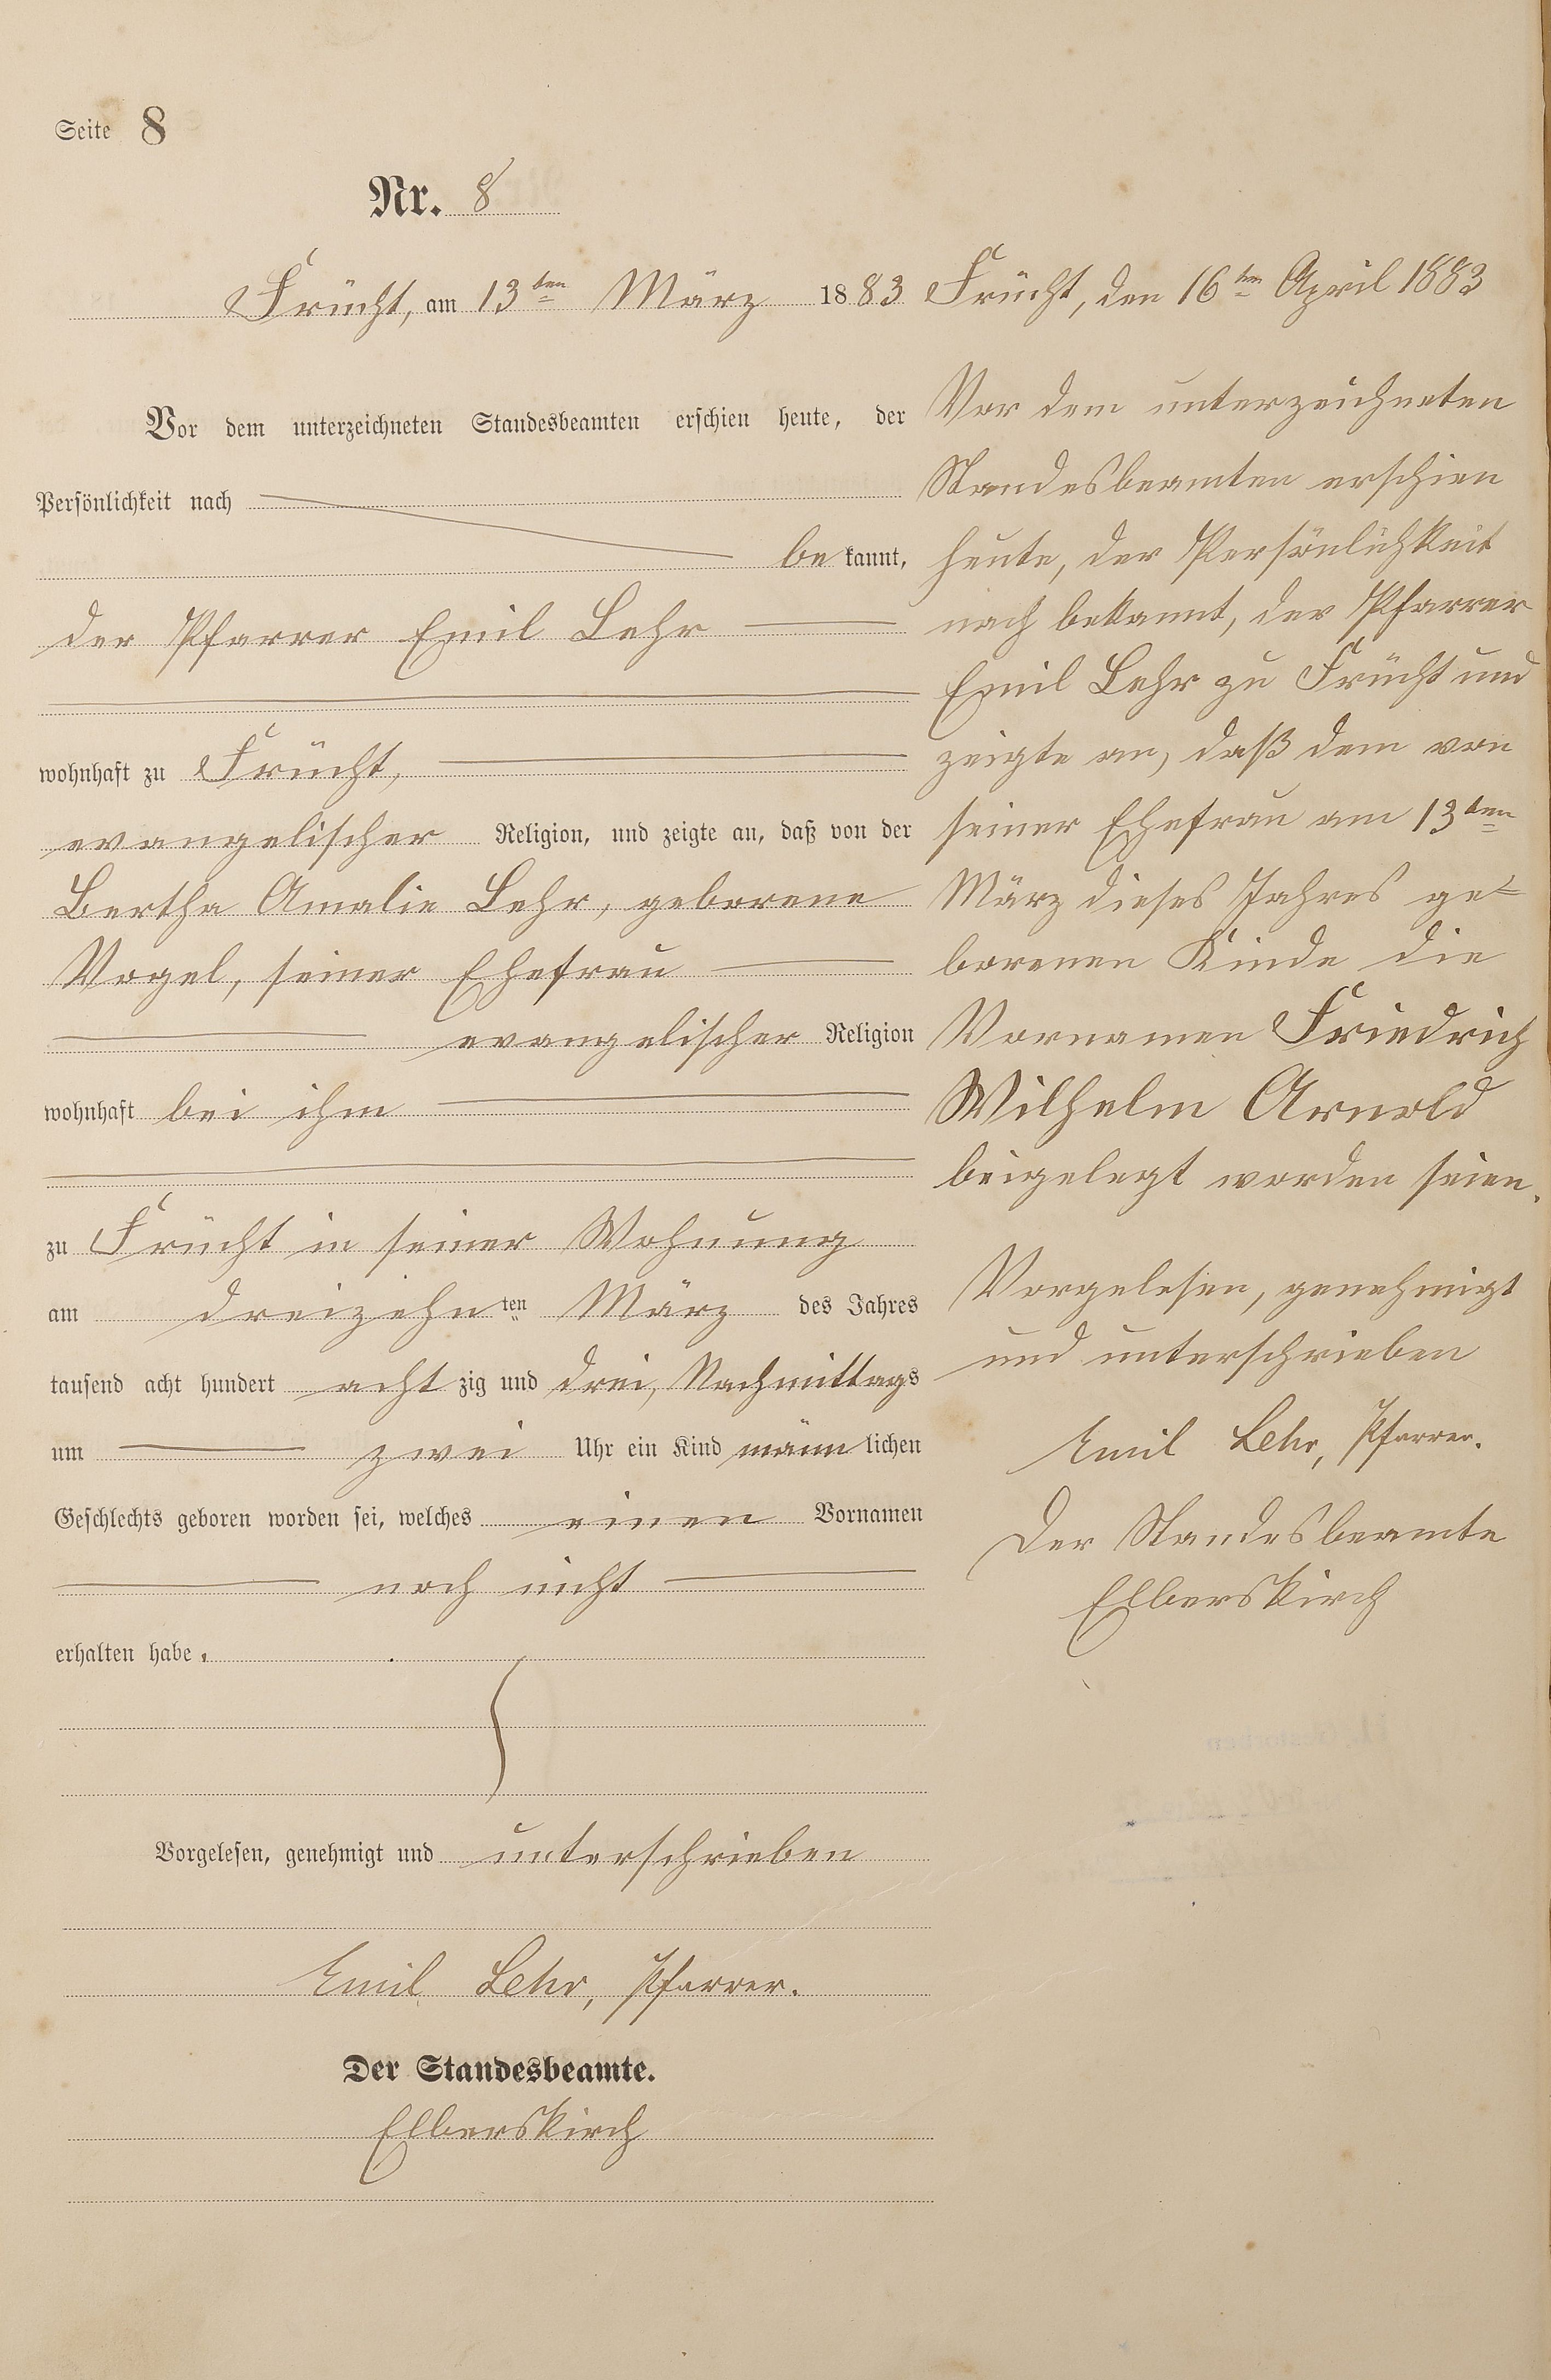 Seite 8
Nr. 8
Frücht, am 13ten März 1883
Vor dem unterzeichneten Standesbeamten erschien heute, der
Persönlichkeit nach
be kannt,
der Pfarrer Emil Lehr
wohnhaft zu Frücht,
evangelischer Religion, und zeigte an, daß von der
Bertha Amalie Lehr, geborene
Vogel, seiner Ehefrau
evangelischer Religion
wohnhaft bei ihm
zu Frücht in seiner Wohnung
am dreizehn ten März des Jahres
tausend acht hundert acht zig und drei, Nachmittags
um zwei Uhr ein Kind männ lichen
Geschlechts geboren worden sei, welches einen Vornamen
noch nicht
erhalten habe.
Vorgelesen, genehmigt und unterschrieben
Emil Lehr, Pfarrer.
Der Standesbeamte.
Elberskirch
Frücht, den 16ten April 1883
Vor dem unterzeichneten
Standesbeamten erschien
heute, der Persönlichkeit
nach bekannt, der Pfarrer
Emil Lehr zu Frücht und
zeigte an, daß dem von
seiner Ehefrau am 13ten
März dieses Jahres ge=
borenen Kinde die
Vornamen Friedrich
Wilhelm Arnold
beigelegt worden seien.
Vorgelesen, genehmigt
und unterschrieben
Emil Lehr, Pfarrer.
Der Standesbeamte
Elberskirch